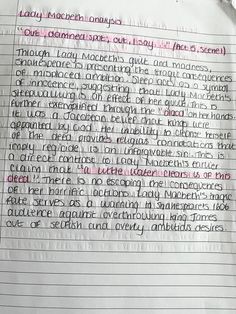 Lady Macbeth analysis
"Out, damned spot, out, I say..." (Act 5, scene 1)
Through Lady Macbeth's guilt and madness,
Shakespeare is presenting the tragic consequences
of misplaced ambition. Sleep acts as a symbol
of innocence, suggesting that Lady Macbeth's
sleepwalking is an effect of her guilt. This is
further exemplified through the "blood" on her hands.
It was a Jacobean belief that kings were
appointed by God. Her inability to cleanse herself
of the deed provides religious connotations that
imply regicide is an unforgivable sin. This is
a direct contrast to Lady Macbeth's earlier
claim that "a little water clears us of this
deed". There is no escaping the consequences
of her horrific actions. Lady Macbeth's tragic
fate serves as a warning to Shakespeare's 1606
audience against overthrowing King James
out of selfish and overly ambitious desires.